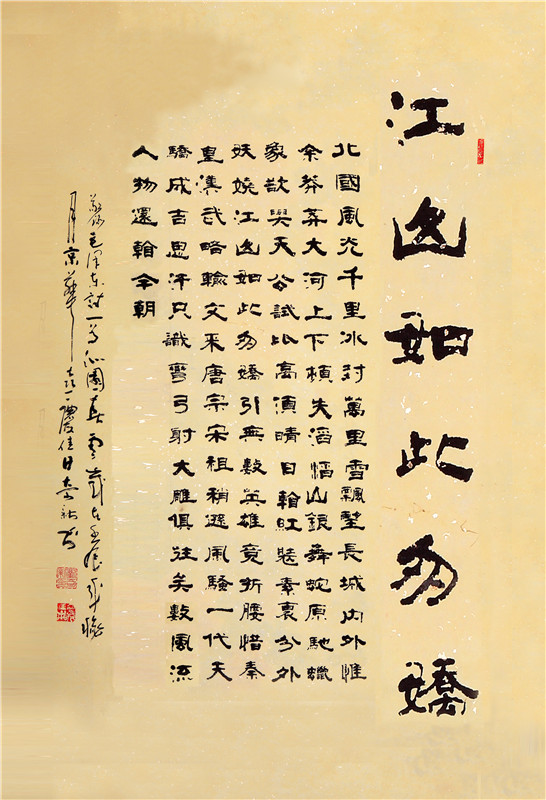 江山如此多嬌
北國風光千里冰封萬里雪飄望長城內外惟
余莽莽大河上下頓失滔滔山銀舞蛇原馳蠟
象欲與天公試比高須晴日看紅裝素裹分外
妖嬈江山如此多嬌引無數英雄競折腰惜秦
皇漢武略輸文采唐宗宋祖稍遜風騷一代天
驕成吉思汗只識彎弓射大雕俱往矣數風流
人物還看今朝
毛澤東詞一首沁園春雪歲在
月京華佳日